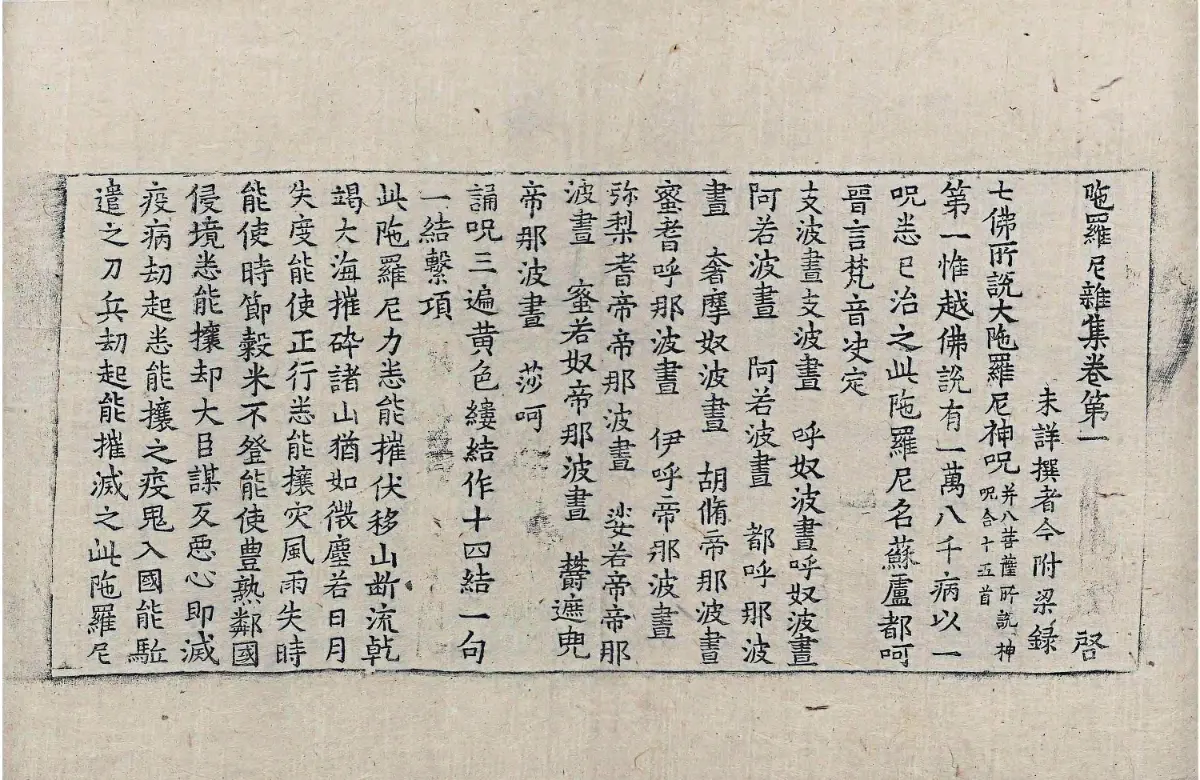 陁羅尼雜集卷第一 啓
未詳撰者今附梁録
七佛所說大陁羅尼神呪并八菩薩所說神呪合十五首
第一惟越佛說有一萬八千病以一
呪悉已治之此陁羅尼名蘇盧都呵
晉言梵音决定
支波晝支波晝 呼奴波晝呼奴波晝
阿若波晝 阿若波晝 都呼那波
晝 奢摩奴波晝 胡脩帝那波晝
蜜耆呼那波晝 伊呼帝那波晝
弥梨耆帝帝那波晝 娑若帝帝那
波晝 蜜若奴帝那波晝 欝遮兜
帝那波晝 莎呵
誦呪三遍黄色縷結作十四結一句
一結繫項
此陁羅尼力悉能摧伏移山斷流乹
竭大海摧碎諸山猶如微塵若日月
失度能使正行悉能攘灾風雨失時
能使時節穀米不登能使豊熟鄰國
侵境悉能攘却大臣謀反惡心即滅
疫病劫起悉能攘之疫鬼入國能駈
遣之刀兵劫起能摧滅之此陁羅尼